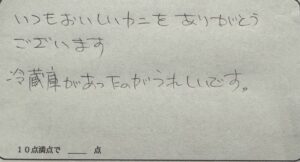 いつもおいしいカニを ありがとう
ございます
冷蔵庫があったのがうれしいです。
10点満点で ____ 点